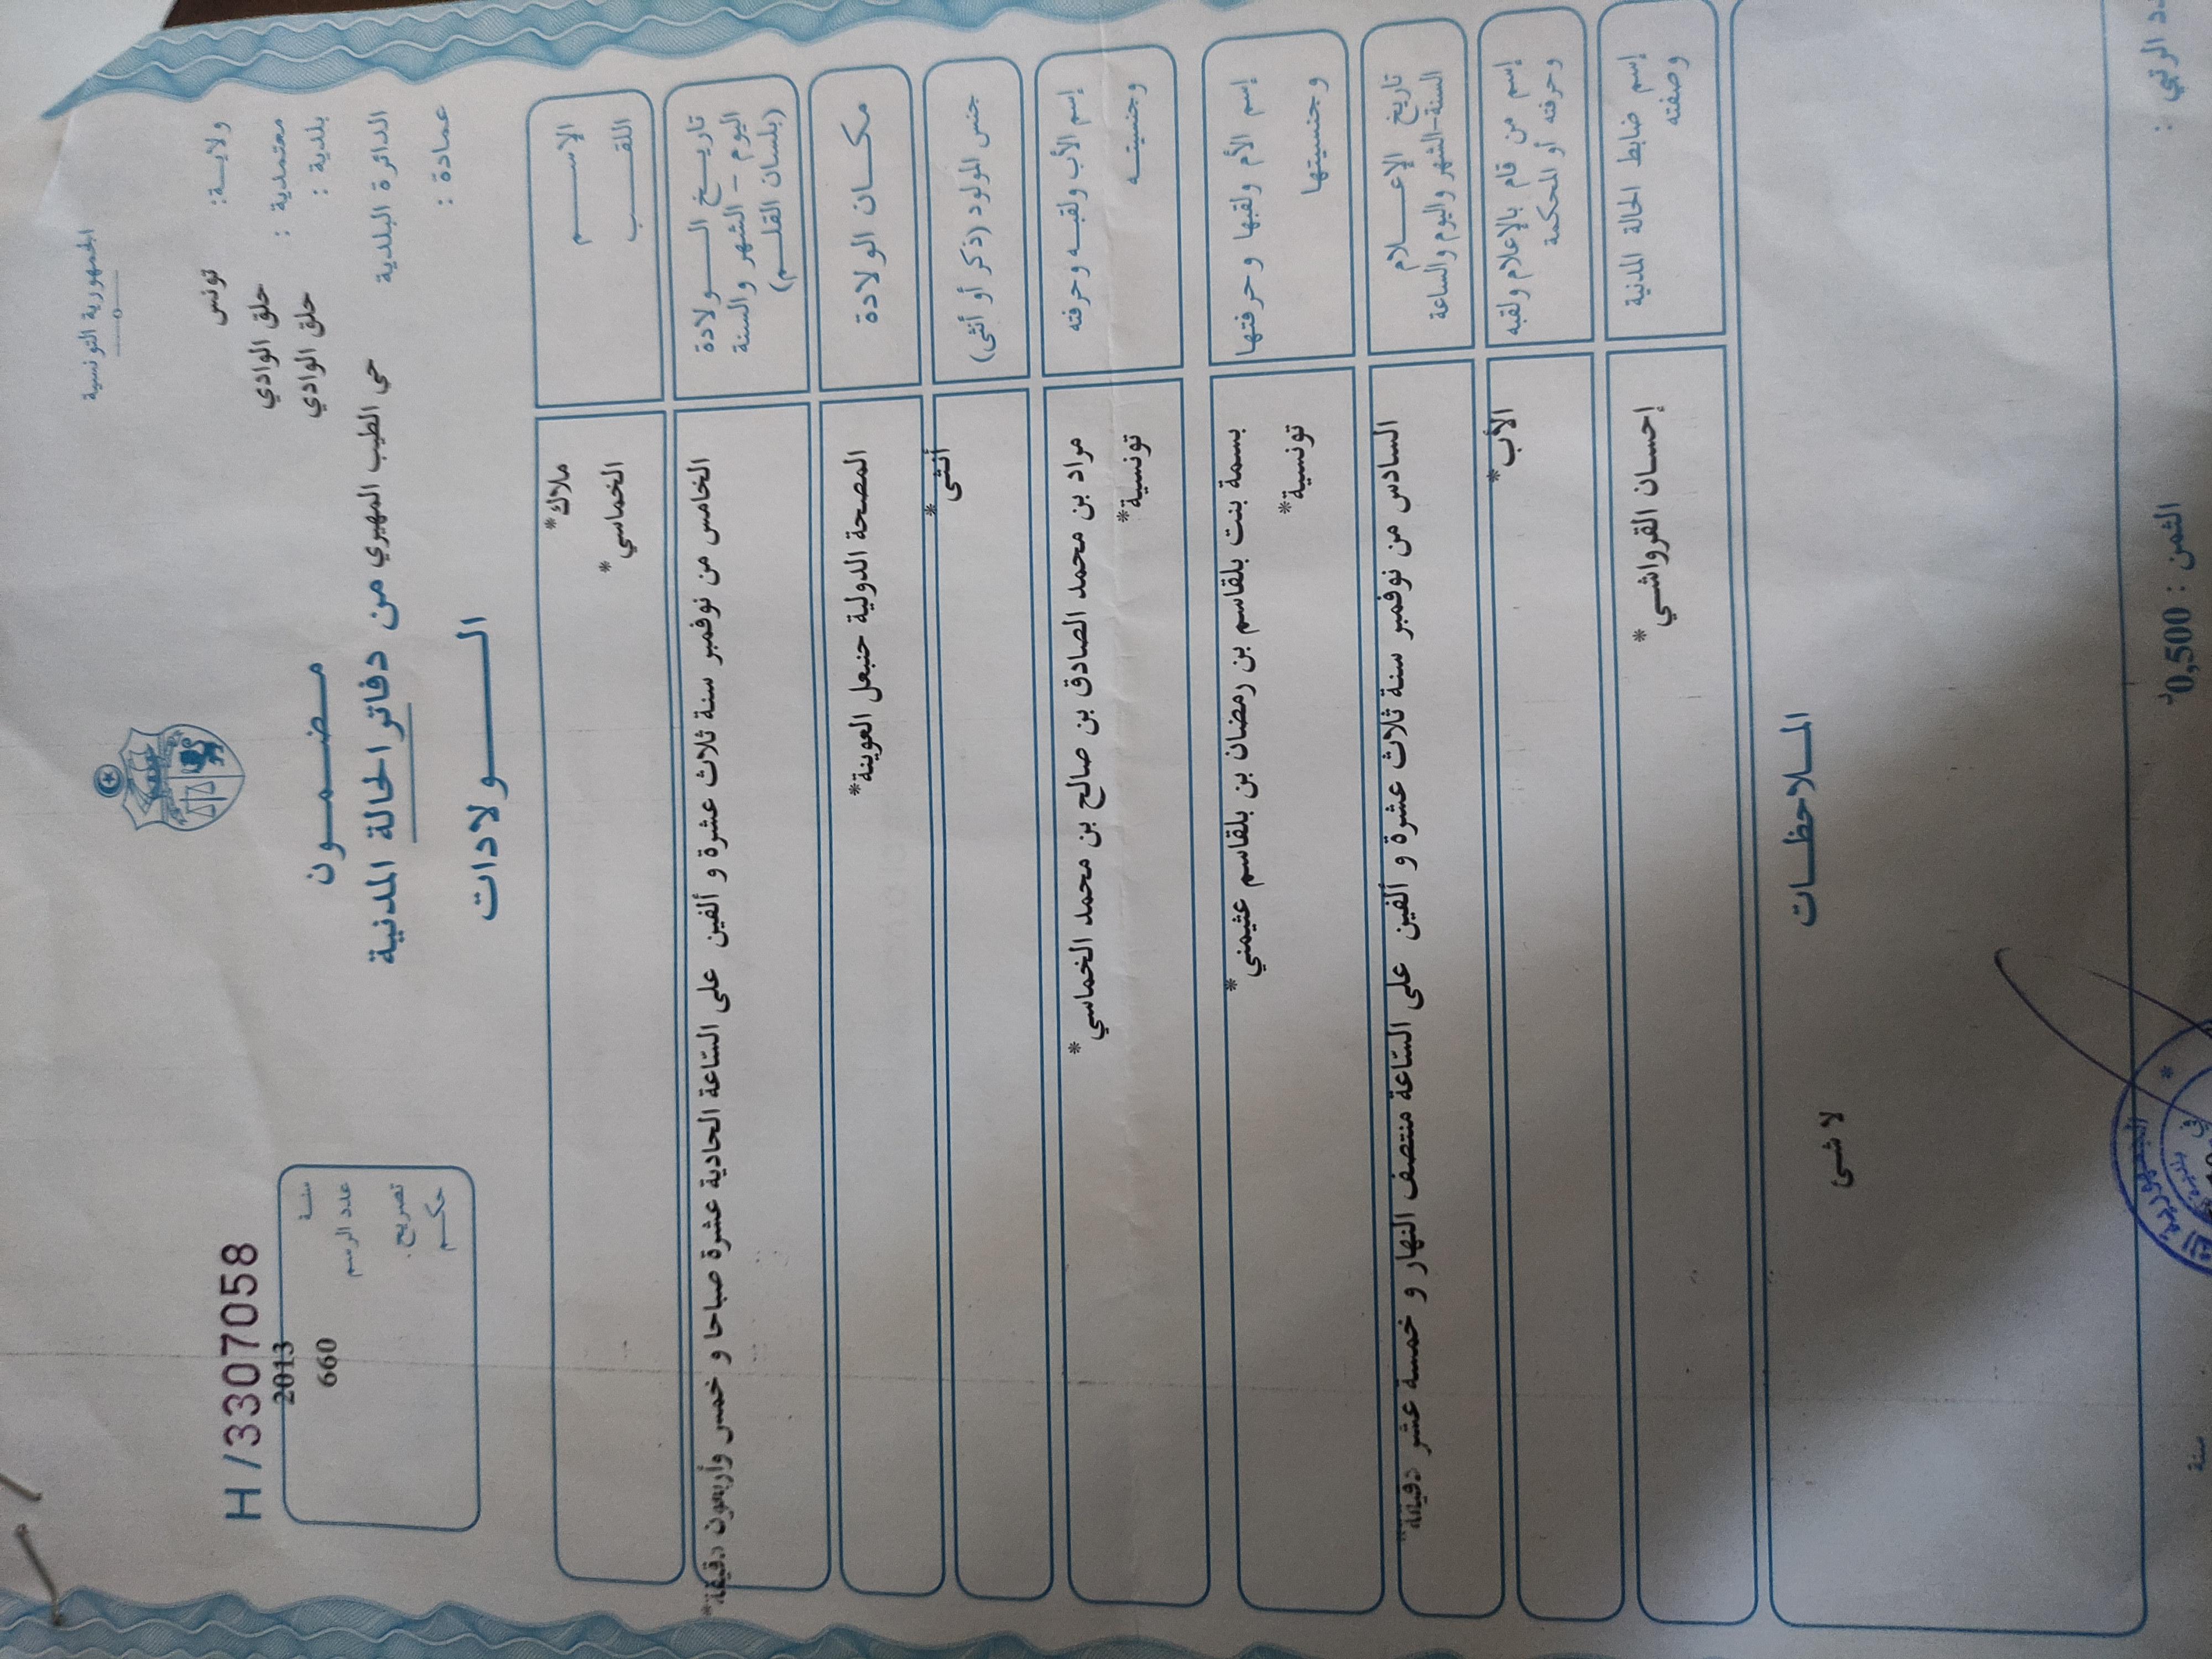 الجمهورية التونسية
ولايــة: تونس
معتمدية : حلق الوادي
بلدية : حلق الوادي
الدائرة البلدية حي الطيب المهيري
عمادة :
H/3307058
سنــة 2013
عدد الرسم 660
تصريح.
حكــم
مـضـمــون
من دفاتر الحالة المدنية
الــولادات
الإســـم ملاك*
اللقــــب الخماسي*
تاريــخ الـــولادة
اليوم - الشهر والسنة
(بلسان القلــم)
الخامس من نوفمبر سنة ثلاث عشرة و ألفين على السّاعة الحادية عشرة صباحا و خمس وأربعون دقيقة*
مكــان الولادة المصحة الدولية حنبعل العوينة*
جنس المولود (ذكر أو أنثى) أنثى*
إسم الأب ولقبــه وحرفته مراد بن محمد الصادق بن صالح بن محمد الخماسي*
وجنسيتــه تونسية*
إسم الأم ولقبها وحرفتها بسمة بنت بلقاسم بن رمضان بن بلقاسم عثيمني*
وجنسيتها تونسية*
تاريخ الإعــلام
السنة-الشهر واليوم والساعة
السادس من نوفمبر سنة ثلاث عشرة و ألفين على السّاعة منتصف النهار و خمسة عشر دقيقة*
إسم من قام بالإعلام ولقبه
وحرفته أو المحكمة
الأب*
إسم ضابط الحالة المدنية
وصفته
إحسان القرواشي*
المــلاحظــات
لا شئ
الرتبي :
الثمن : 0,500د
سنة